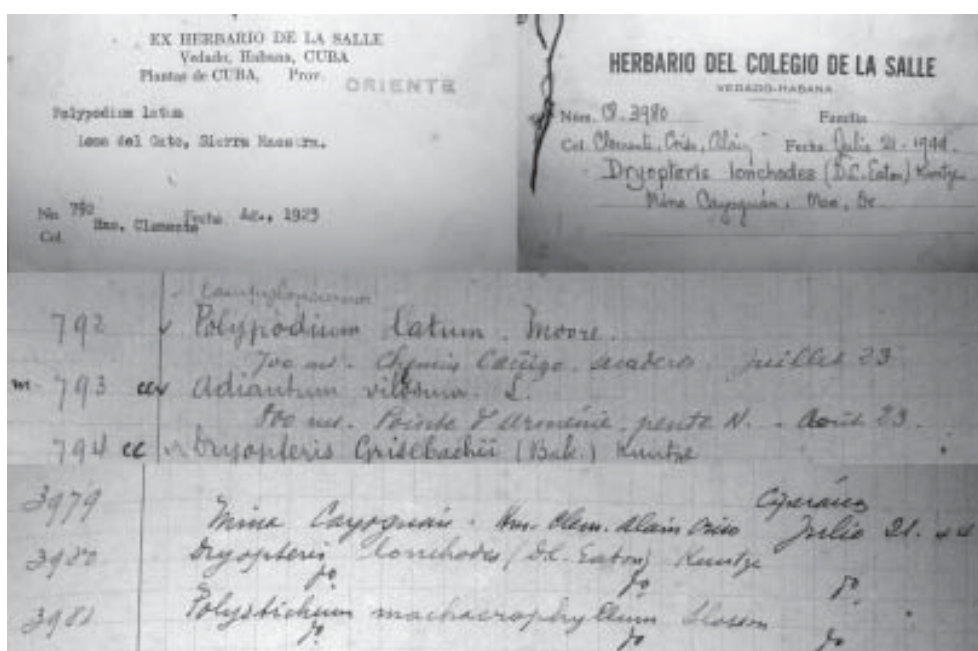 EX HERBARIO DE LA SALLE
Vedado, Habana, CUBA
Plantas de CUBA, Prov.
ORIENTE
Polypodium latum
Loma del Gato, Sierra Maestra.
No 792
Hno. Clemente Fecha Ag., 1923
Col.
HERBARIO DEL COLEGIO DE LA SALLE
VEDADO-HABANA
Núm. O. 3980 Familia
Col. Clemente, Crisó, Alain Fecha Julio 21-1944
Dryopteris lonchodes (D.C. Eaton) Kuntze
Mina Cayoguán, Moa, Or.
Campyloneurum
792 Polypodium latum. Moore.
700 m. Chemin juillet 23
m. 793 cc Adiantum villosum. L.
800 m. Pointe d'Arménie, pente N. - Août 23.
794 cc Dryopteris Grisebachii (Bak.) Kuntze
3979 Ciperácea
Mina Cayoguán. Hm. Clem. Alain Julio 21.
3980 Dryopteris lonchodes (D.C. Eaton) Kuntze
Jo. Jo. Jo.
3981 Polystichum machaerophyllum Slosson
Jo. Jo. Jo.